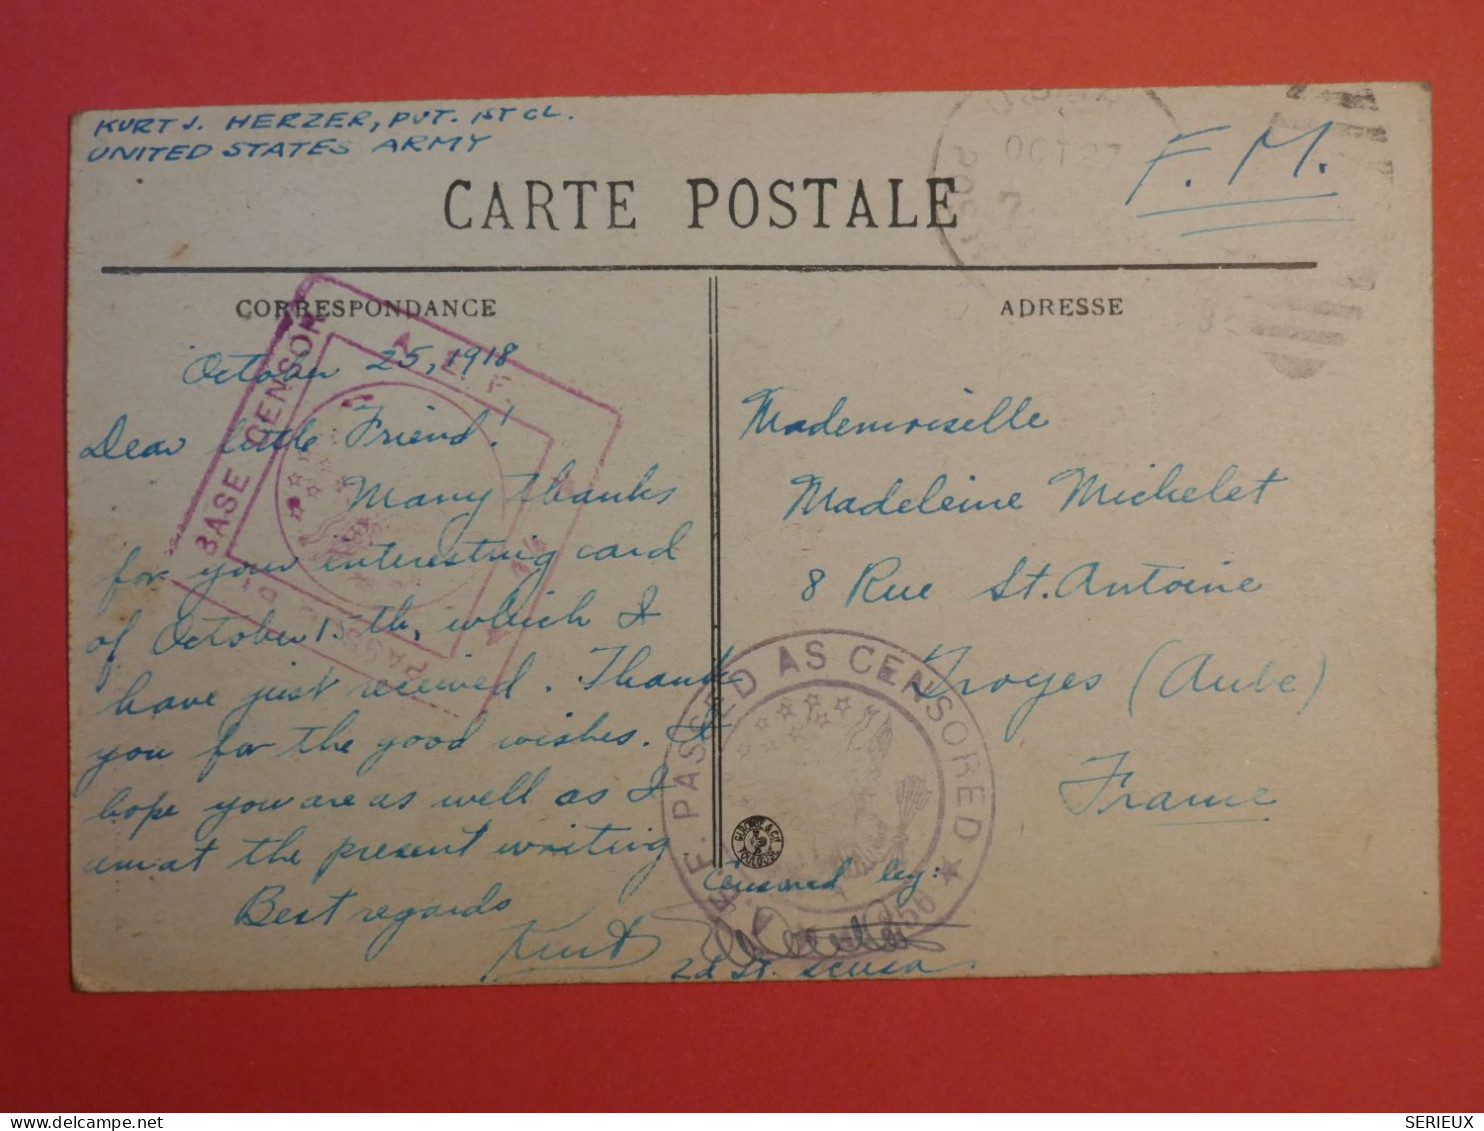 KURT J. HERZER, PVT. 1ST CL.
UNITED STATES ARMY
F. M.
OCT 27
CARTE POSTALE
CORRESPONDANCE
ADRESSE
BASE CENSOR
A. E. F.
PASSED BY
October 25, 1918
Dear little Friend!
Many thanks
for your interesting card
of October 15th, which I
have just received. Thank
you for the good wishes. I
hope you are as well as I
am at the present writing
Best regards
Kurt
Mademoiselle
Madeleine Michelet
8 Rue St. Antoine
Troyes (Aube)
France
A. E. F. PASSED AS CENSORED
TOULOUSE
Censored by:
2d Lt.
delcampe.net
SERIEUX